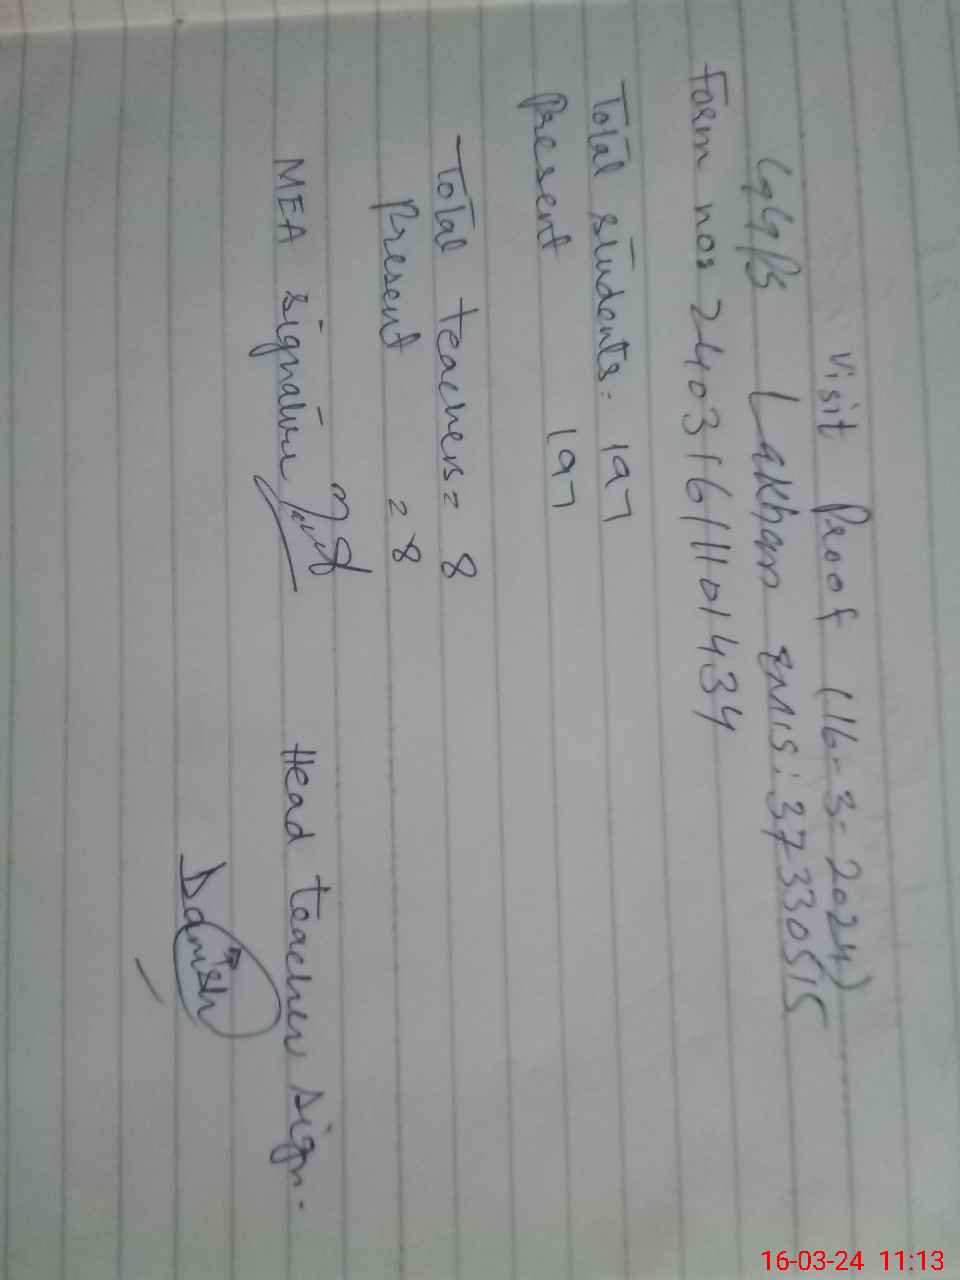 Visit Proof (16-3-2024)
GGPS Lakhan EMIS: 37330515
Form no: 2403161101434
Total students: 197
Present 197
Total teachers = 8
Present = 8
MEA signature
Head teacher sign.
Danish
16-03-24 11:13